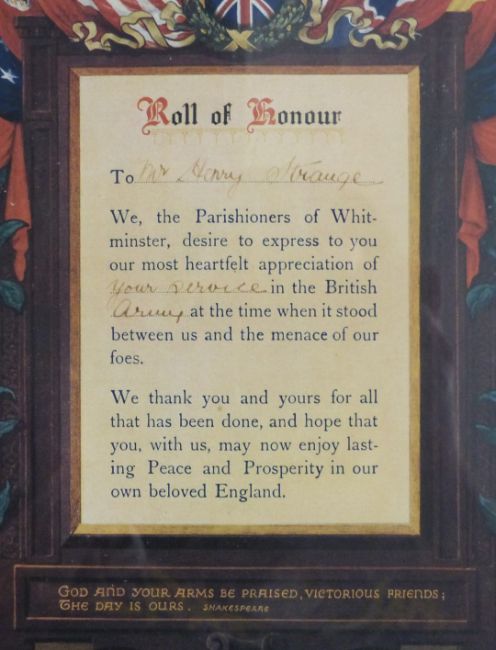 Roll of Honour
To Mr Henry Strange
We, the Parishioners of Whit-
minster, desire to express to you
our most heartfelt appreciation of
your service in the British
Army at the time when it stood
between us and the menace of our
foes.
We thank you and yours for all
that has been done, and hope that
you, with us, may now enjoy last-
ing Peace and Prosperity in our
own beloved England.
GOD AND YOUR ARMS BE PRAISED, VICTORIOUS FRIENDS;
THE DAY IS OURS. SHAKESPEARE